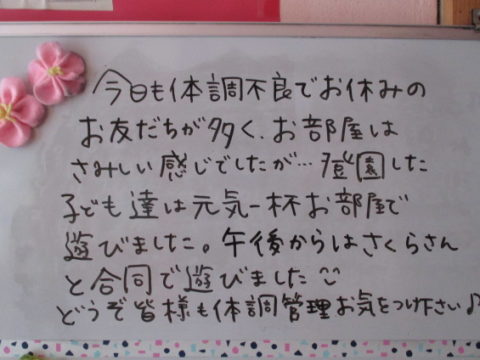 今日も体調不良でお休みの
お友だちが多く、お部屋は
さみしい感じでしたが…登園した
子ども達は元気一杯お部屋で
遊びました。午後からはさくらさん
と合同で遊びました
どうぞ皆様も体調管理お気をつけ下さい♪